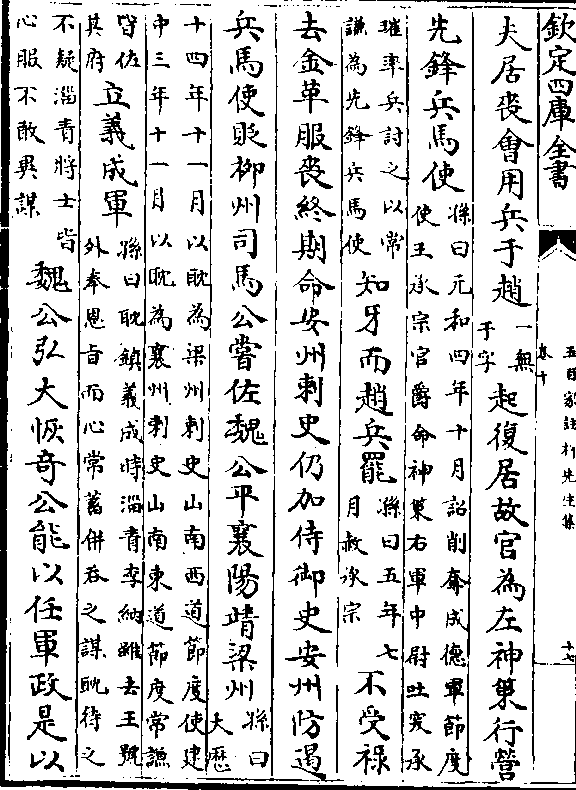 欽定四庫全書
五百家註柳先生集
卷十
十七
夫居喪會用兵于趙一無于字起復居故官為左神策行營
先鋒兵馬使孫曰元和四年十月詔削奪成德軍節度
使王承宗官爵命神策右軍中尉吐突承
璀率兵討之以常
謙為先鋒兵馬使知牙而趙兵罷孫曰五年七月赦承宗不受祿
去金革服喪終期命安州刺史仍加侍御史安州防遏
兵馬使貶柳州司馬公嘗佐魏公平襄陽靖梁州孫曰大歷
十四年十一月以耽為梁州刺史山南西道節度使建
中三年十一月以耽為襄州刺史山南東道節度常謙
皆佐其府立義成軍孫曰耽鎮義成時淄青李納雖去王號
外奉恩旨而心常蓄併吞之謀耽待之
不疑淄青將士皆
心服不敢異謀魏公弘大恢奇公能以任軍政是以